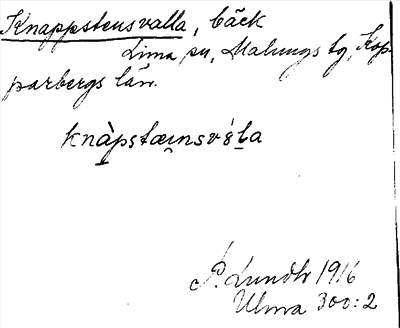 Knappstensvalla, bäck
Lima sn, Malungs tg, Kop-
parbergs län.
knàpstæɩnsvʹsḷa
P. Lundh 1916
Ulma 300:2